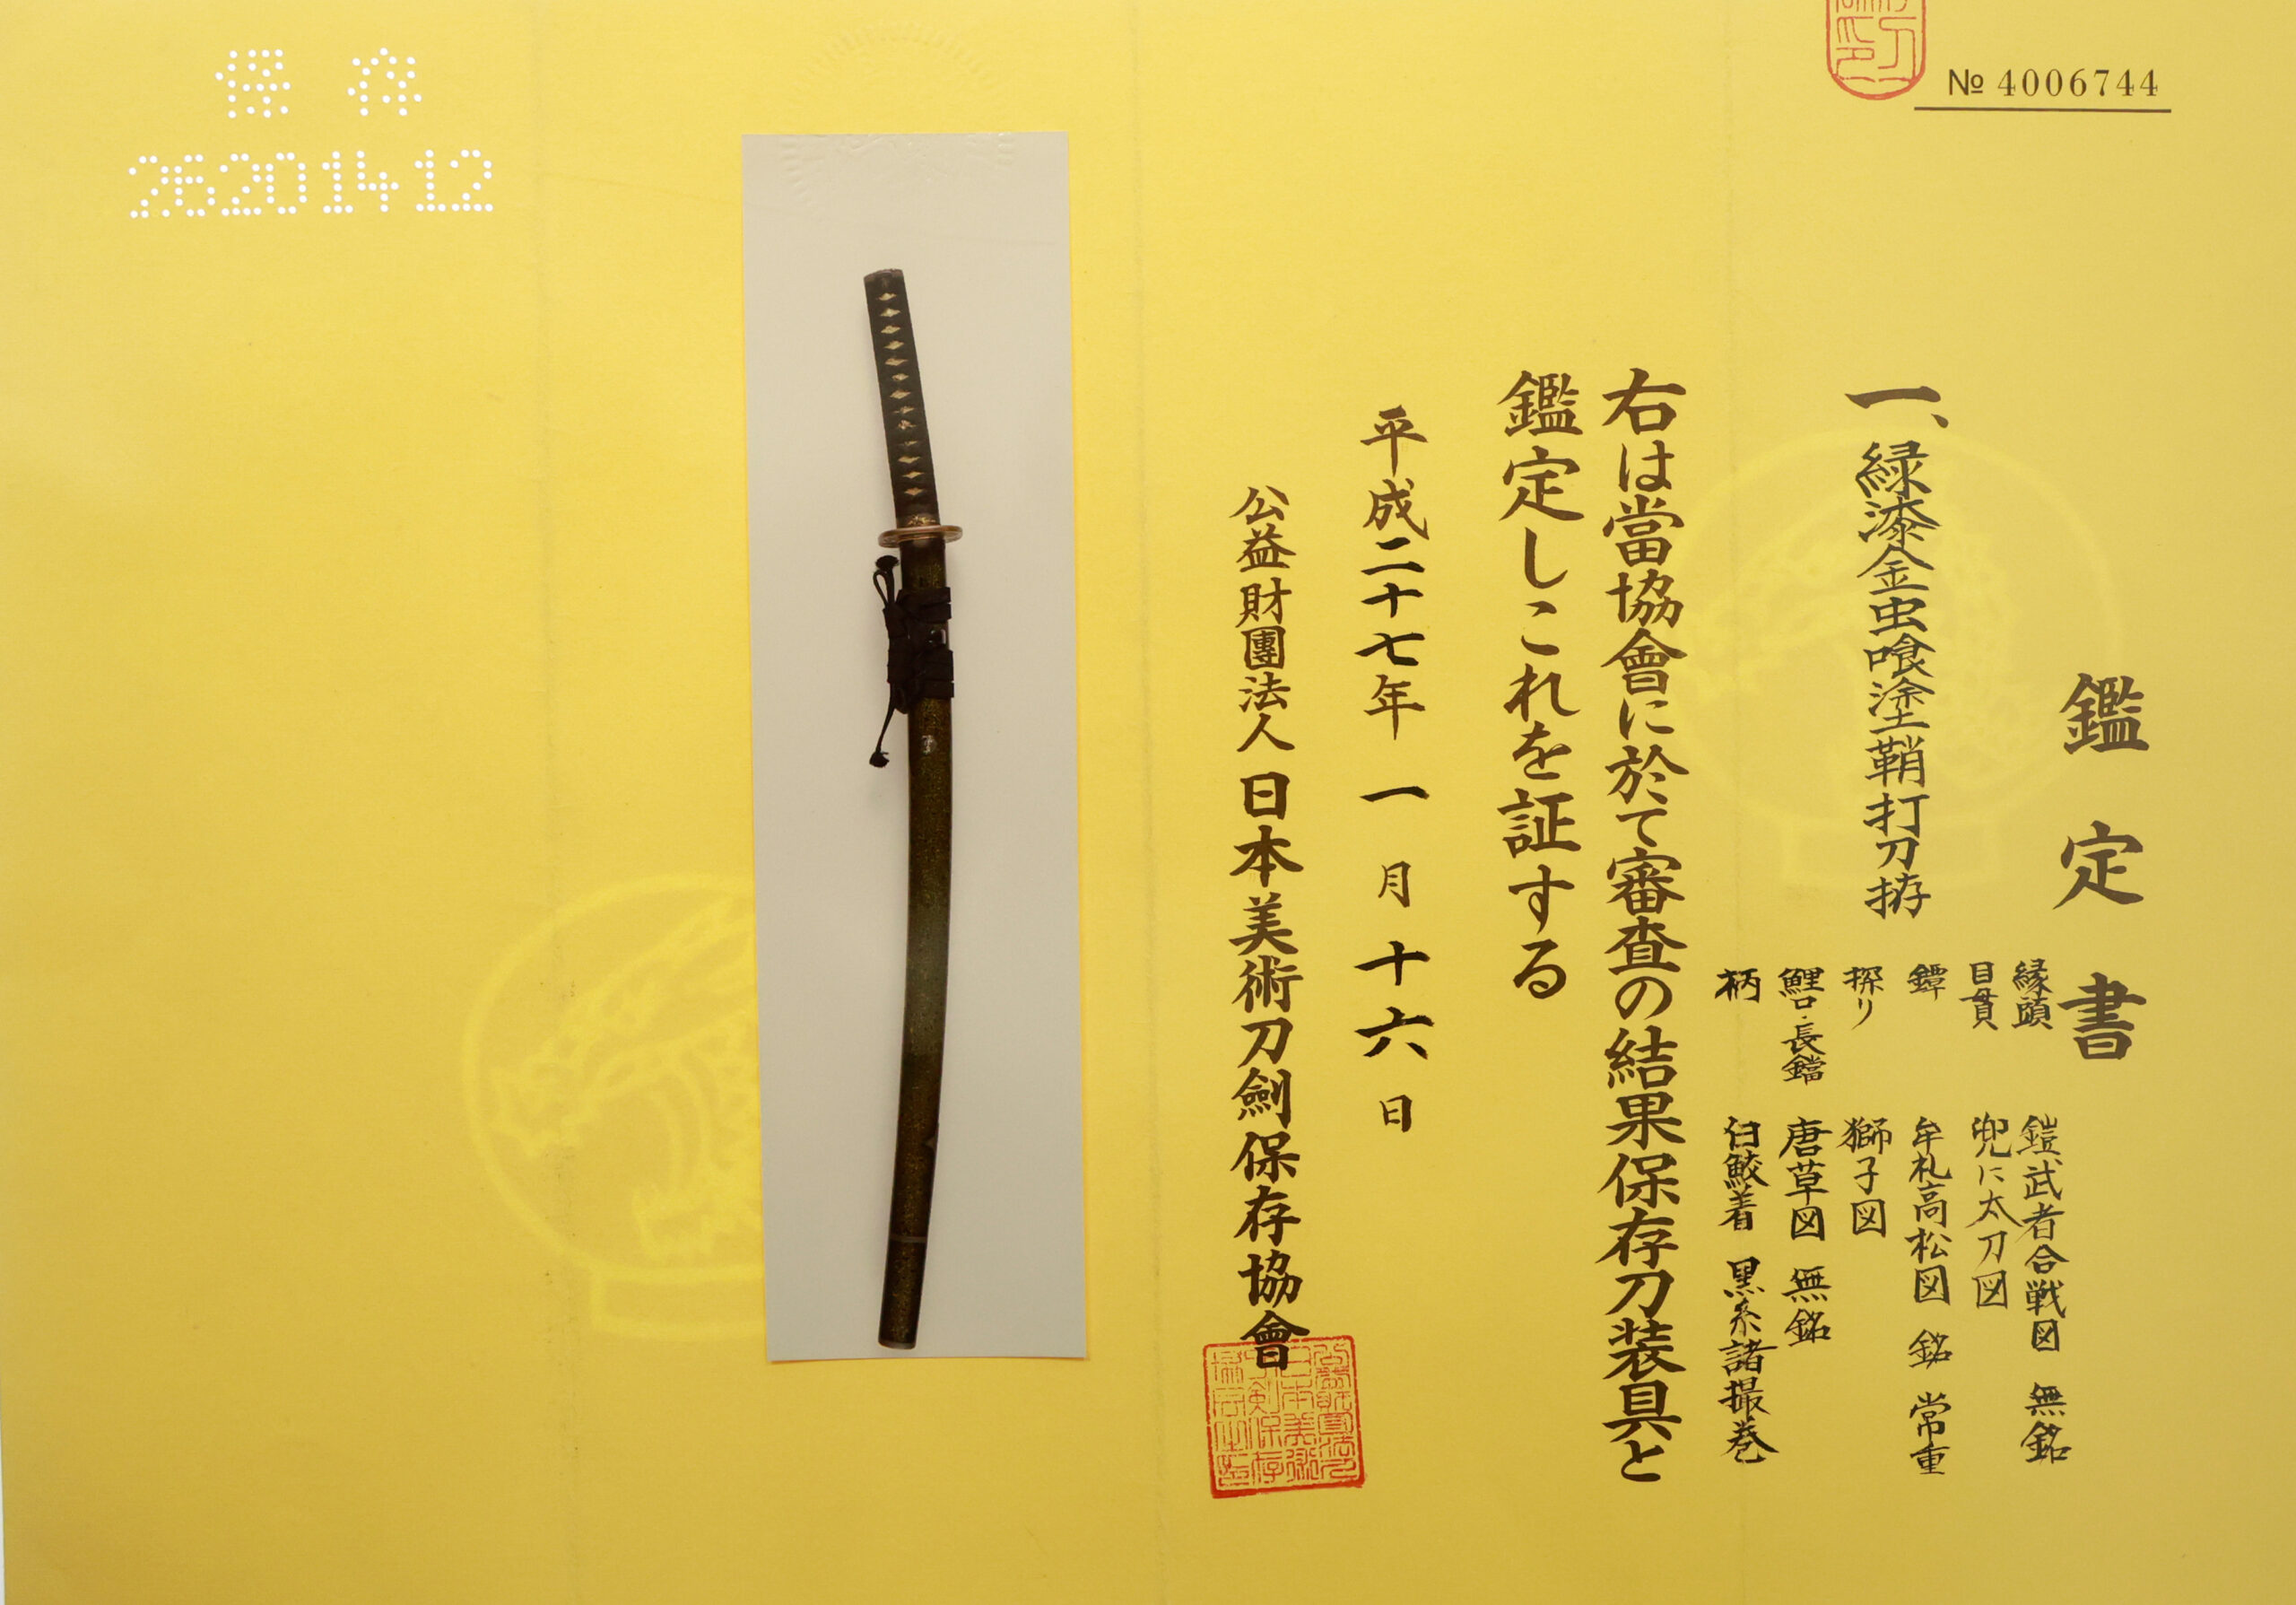 鑑定書
一、緑漆金虫喰塗鞘打刀拵
縁頭 鎧武者合戦図 無銘
目貫 兜に太刀図
鐔 牟礼高松図 銘 常重
探り 獅子図
鯉口・長鐺 唐草図 無銘
柄 白鮫着 黒糸諸撮巻
右は當協會に於て審査の結果保存刀装具と
鑑定しこれを証する
平成二十七年一月十六日
公益財團法人日本美術刀劍保存協會
№ 4006744
保存
26201412